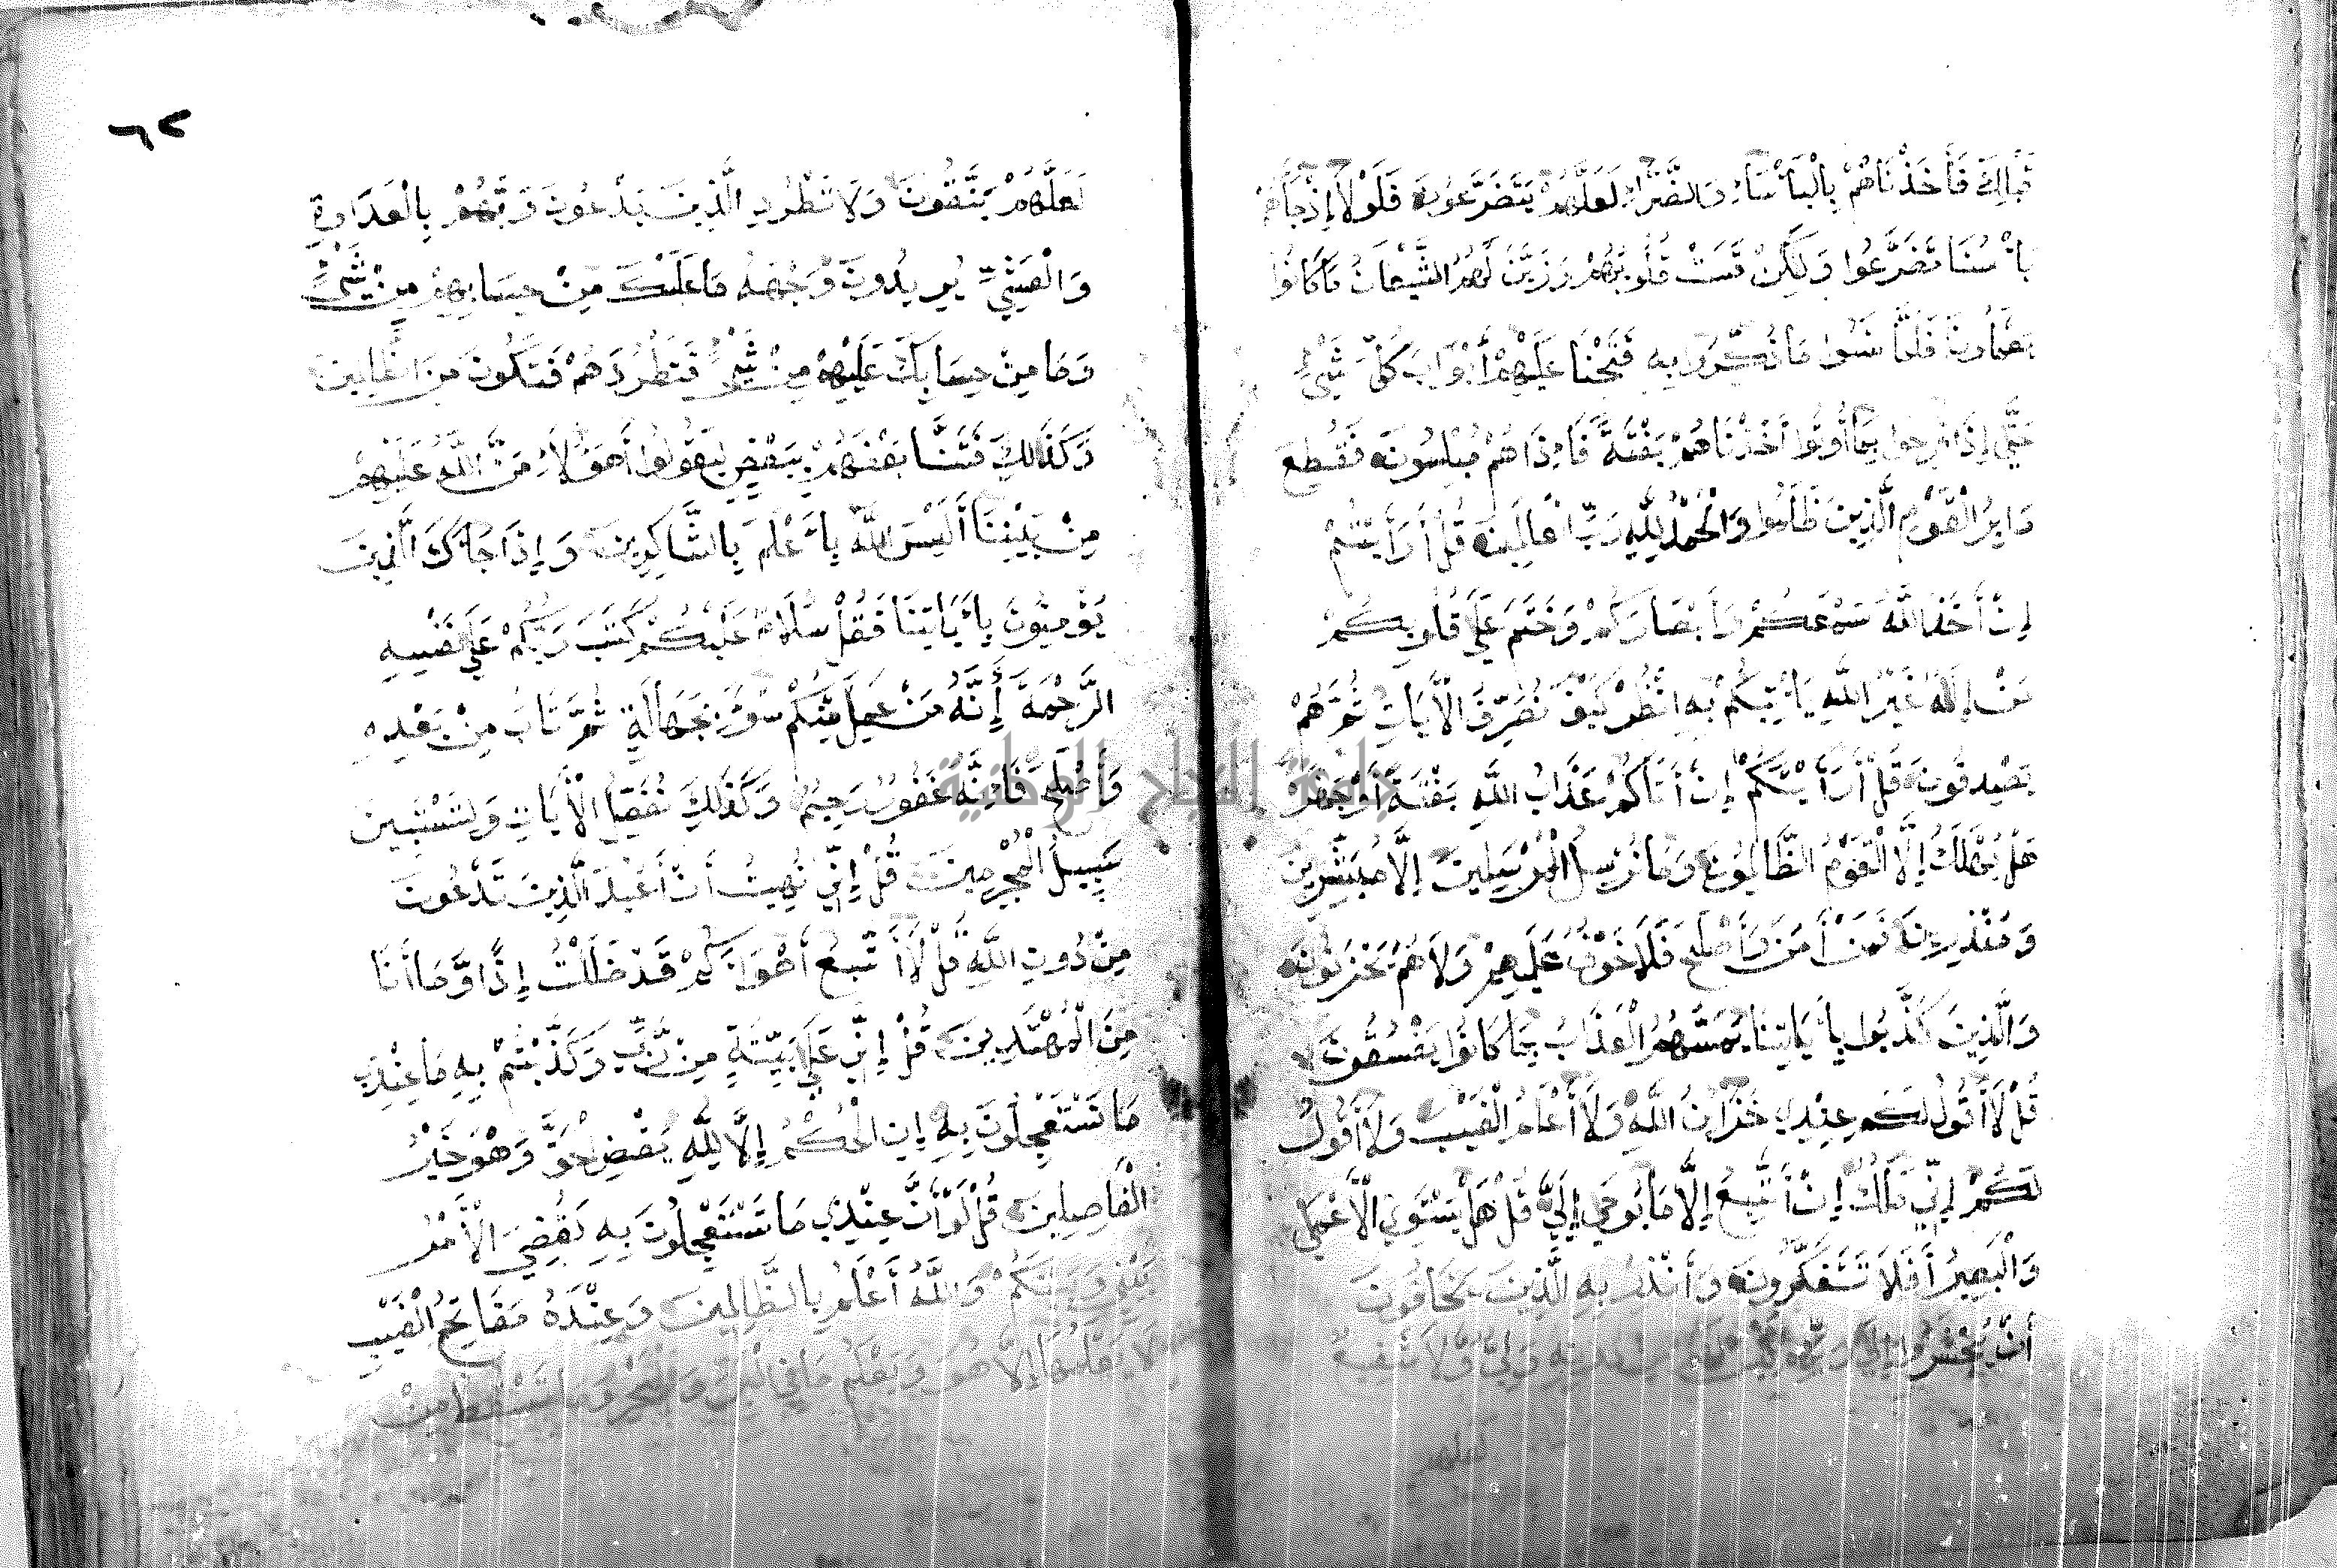 قَبْلِكَ فَأَخَذْنَاهُمْ بِالْبَأْسَاءِ وَالضَّرَّاءِ لَعَلَّهُمْ يَتَضَرَّعُونَ فَلَوْلَا إِذْ جَاءَهُمْ
بَأْسُنَا تَضَرَّعُوا وَلَكِنْ قَسَتْ قُلُوبُهُمْ وَزَيَّنَ لَهُمُ الشَّيْطَانُ مَا كَانُوا
يَعْمَلُونَ فَلَمَّا نَسُوا مَا ذُكِّرُوا بِهِ فَتَحْنَا عَلَيْهِمْ أَبْوَابَ كُلِّ شَيْءٍ
حَتَّى إِذَا فَرِحُوا بِمَا أُوتُوا أَخَذْنَاهُمْ بَغْتَةً فَإِذَا هُمْ مُبْلِسُونَ فَقُطِعَ
دَابِرُ الْقَوْمِ الَّذِينَ ظَلَمُوا وَالْحَمْدُ لِلَّهِ رَبِّ الْعَالَمِينَ قُلْ أَرَأَيْتُمْ
إِنْ أَخَذَ اللَّهُ سَمْعَكُمْ وَأَبْصَارَكُمْ وَخَتَمَ عَلَى قُلُوبِكُمْ
مَنْ إِلَهٌ غَيْرُ اللَّهِ يَأْتِيكُمْ بِهِ انْظُرْ كَيْفَ نُصَرِّفُ الْأَيَاتِ ثُمَّ هُمْ
يَصْدِفُونَ قُلْ أَرَأَيْتَكُمْ إِنْ أَتَاكُمْ عَذَابُ اللَّهِ بَغْتَةً أَوْ جَهْرَةً
هَلْ يُهْلَكُ إِلَّا الْقَوْمُ الظَّالِمُونَ وَمَا نُرْسِلُ الْمُرْسَلِينَ إِلَّا مُبَشِّرِينَ
وَمُنْذِرِينَ فَمَنْ أَمَنَ وَأَصْلَحَ فَلَا خَوْفٌ عَلَيْهِمْ وَلَا هُمْ يَحْزَنُونَ
وَالَّذِينَ كَذَّبُوا بِأَيَاتِنَا يَمَسُّهُمُ الْعَذَابُ بِمَا كَانُوا يَفْسُقُونَ
قُلْ لَا أَقُولُ لَكُمْ عِنْدِي خَزَائِنُ اللَّهِ وَلَا أَعْلَمُ الْغَيْبَ وَلَا أَقُولُ
لَكُمْ إِنِّي مَلَكٌ إِنْ أَتَّبِعُ إِلَّا مَا يُوحَى إِلَيَّ قُلْ هَلْ يَسْتَوِي الْأَعْمَى
وَالْبَصِيرُ أَفَلَا تَتَفَكَّرُونَ وَأَنْذِرْ بِهِ الَّذِينَ يَخَافُونَ
أَنْ يُحْشَرُوا إِلَى رَبِّهِمْ لَيْسَ لَهُمْ مِنْ دُونِهِ وَلِيٌّ وَلَا شَفِيعٌ
٦٢
لَعَلَّهُمْ يَتَّقُونَ وَلَا تَطْرُدِ الَّذِينَ يَدْعُونَ رَبَّهُمْ بِالْغَدَاوةِ
وَالْعَشِيِّ يُرِيدُونَ وَجْهَهُ مَا عَلَيْكَ مِنْ حِسَابِهِمْ مِنْ شَيْءٍ
وَمَا مِنْ حِسَابِكَ عَلَيْهِمْ مِنْ شَيْءٍ فَتَطْرُدَهُمْ فَتَكُونَ مِنَ الظَّالِمِينَ
وَكَذَلِكَ فَتَنَّا بَعْضَهُمْ بِبَعْضٍ لِيَقُولُوا أَهَؤُلَاءِ مَنَّ اللَّهُ عَلَيْهِمْ
مِنْ بَيْنِنَا أَلَيْسَ اللَّهُ بِأَعْلَمَ بِالشَّاكِرِينَ وَإِذَا جَاءَكَ الَّذِينَ
يُؤْمِنُونَ بِأَيَاتِنَا فَقُلْ سَلَامٌ عَلَيْكُمْ كَتَبَ رَبُّكُمْ عَلَى نَفْسِهِ
الرَّحْمَةَ أَنَّهُ مَنْ عَمِلَ مِنْكُمْ سُوءًا بِجَهَالَةٍ ثُمَّ تَابَ مِنْ بَعْدِهِ
وَأَصْلَحَ فَإِنَّهُ غَفُورٌ رَحِيمٌ وَكَذَلِكَ نُفَصِّلُ الْأَيَاتِ وَلِتَسْتَبِينَ
سَبِيلُ الْمُجْرِمِينَ قُلْ إِنِّي نُهِيتُ أَنْ أَعْبُدَ الَّذِينَ تَدْعُونَ
مِنْ دُونِ اللَّهِ قُلْ لَا أَتَّبِعُ أَهْوَاءَكُمْ قَدْ ضَلَلْتُ إِذًا وَمَا أَنَا
مِنَ الْمُهْتَدِينَ قُلْ إِنِّي عَلَى بَيِّنَةٍ مِنْ رَبِّي وَكَذَّبْتُمْ بِهِ مَا عِنْدِي
مَا تَسْتَعْجِلُونَ بِهِ إِنِ الْحُكْمُ إِلَّا لِلَّهِ يَقْضِ الْحَقَّ وَهْوَ خَيْرُ
الْفَاصِلِينَ قُلْ لَوْ أَنَّ عِنْدِي مَا تَسْتَعْجِلُونَ بِهِ لَقُضِيَ الْأَمْرُ
بَيْنِي وَبَيْنَكُمْ وَاللَّهُ أَعْلَمُ بِالظَّالِمِينَ وَعِنْدَهُ مَفَاتِحُ الْغَيْبِ
لَا يَعْلَمُهَا إِلَّا هُوَ وَيَعْلَمُ مَا فِي الْبَرِّ وَالْبَحْرِ وَمَا تَسْقُطُ مِنْ